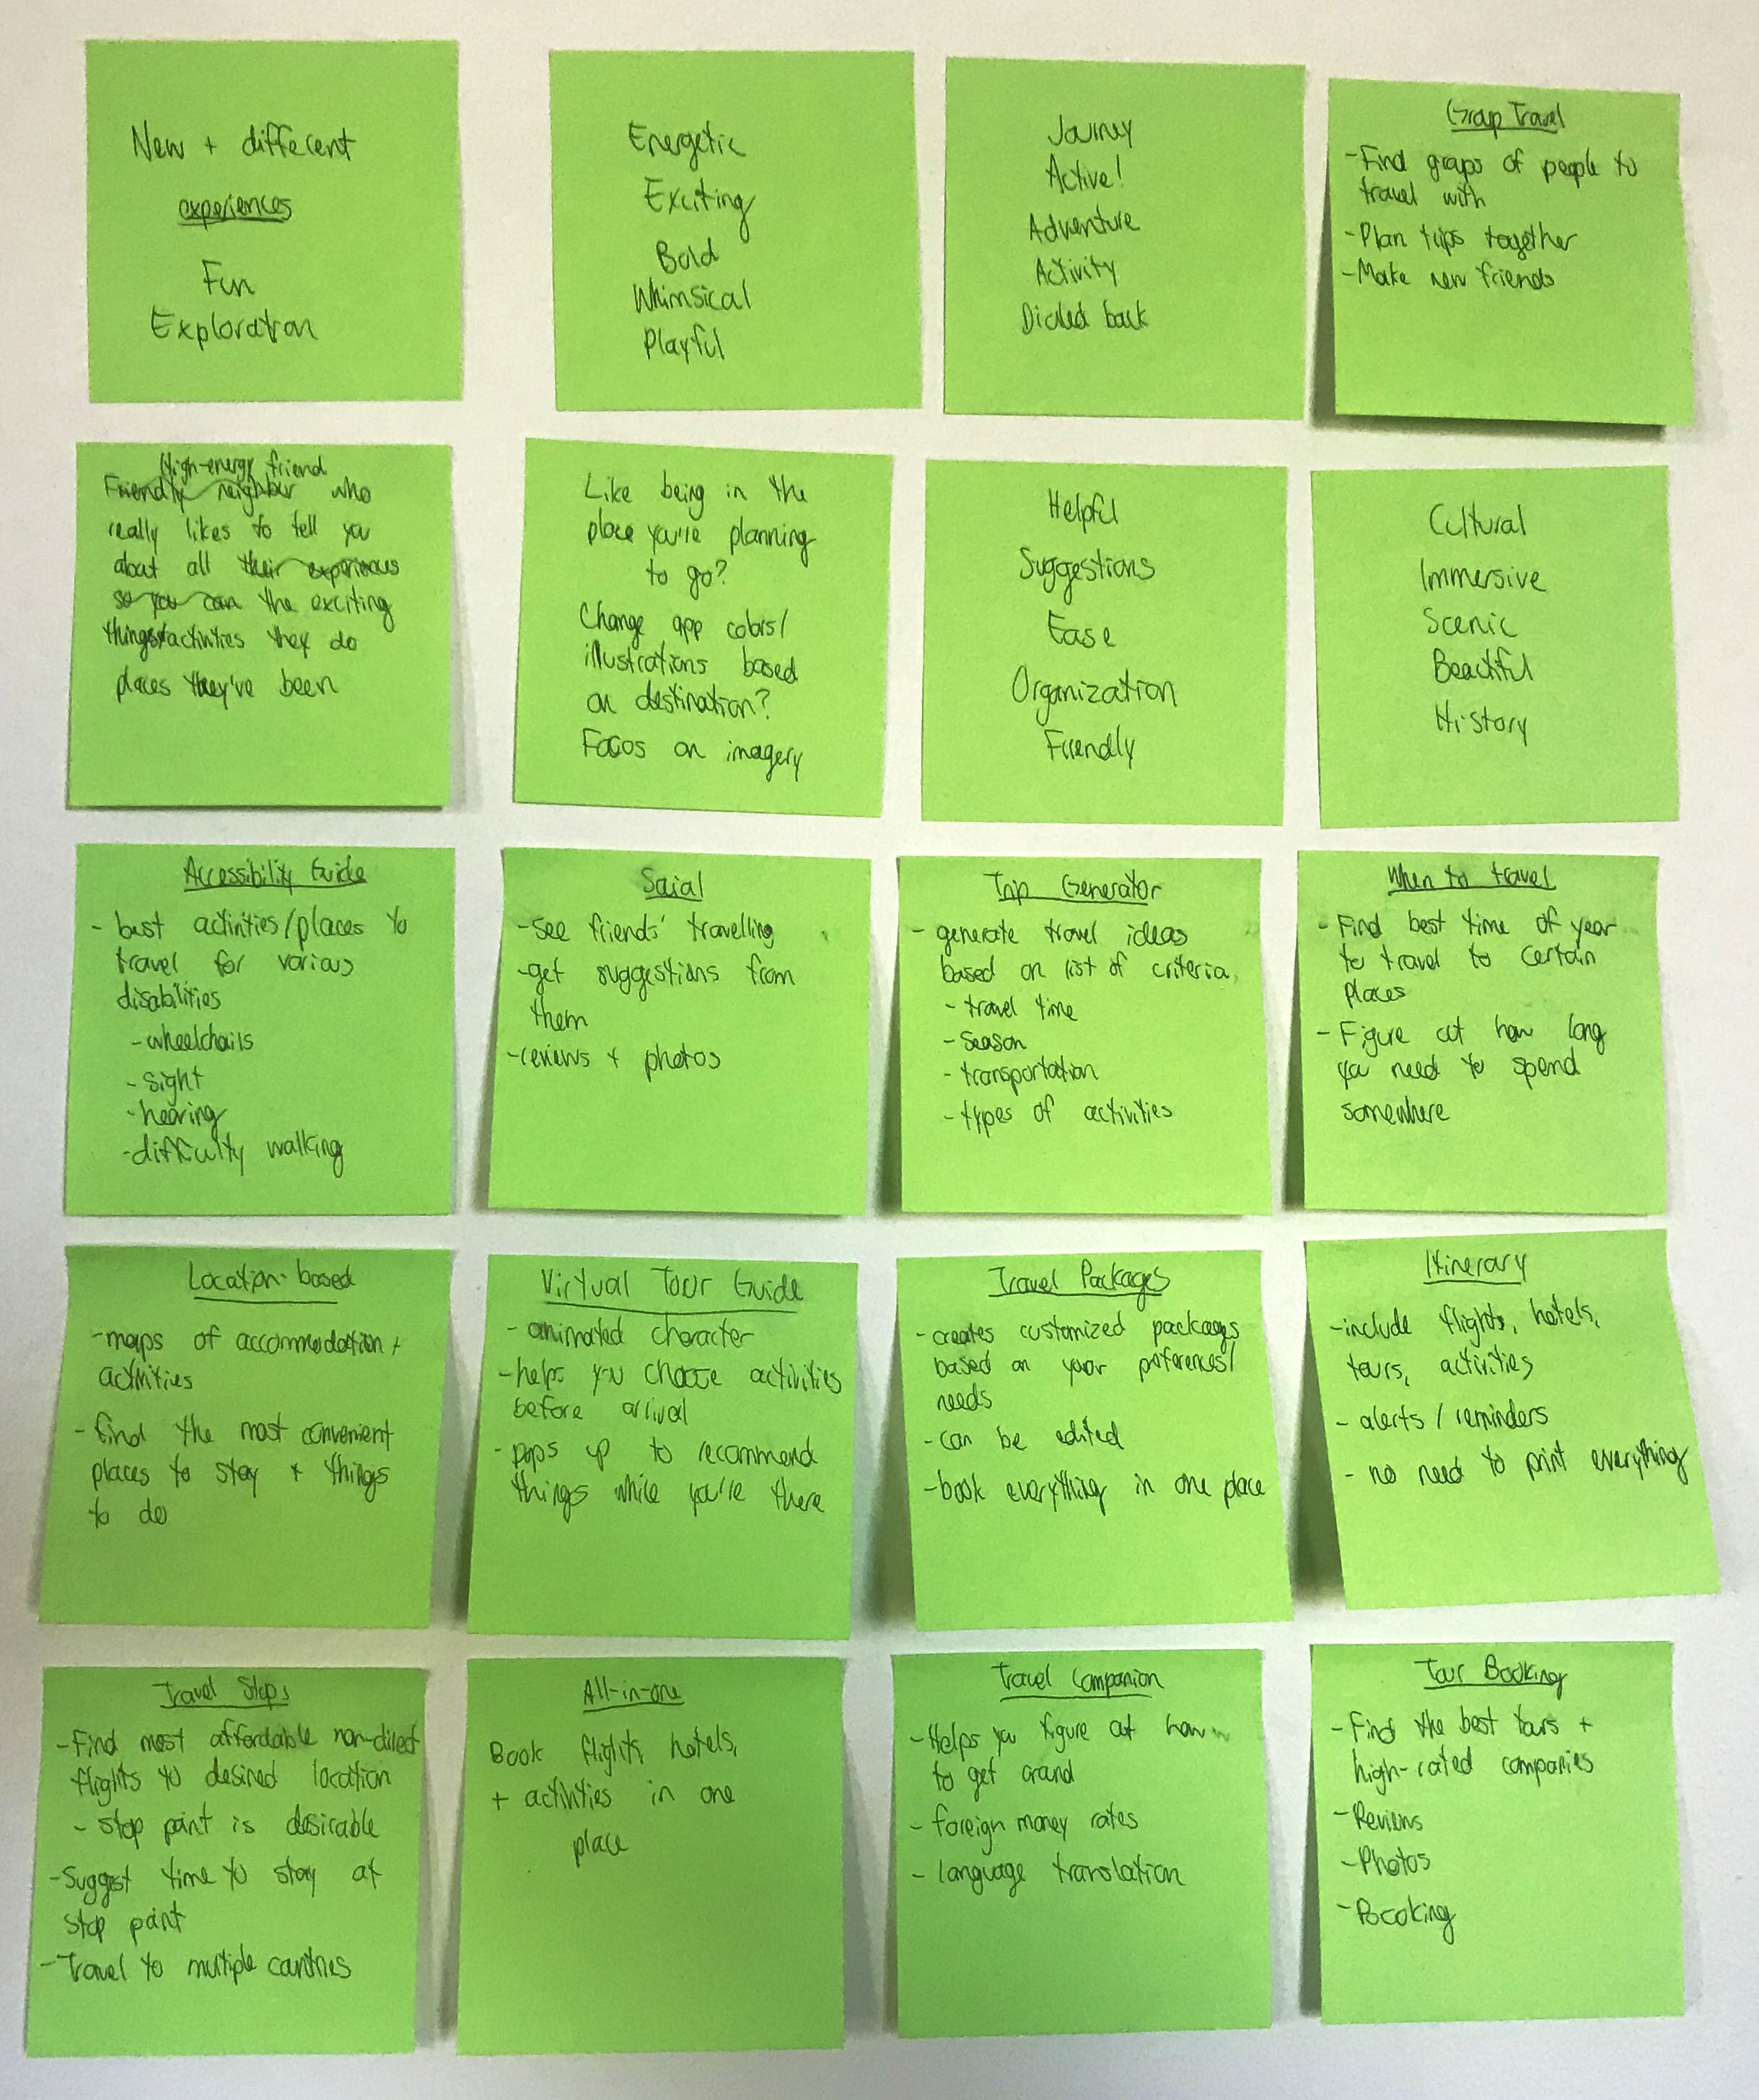 New + different
experiences
Fun
Exploration
Energetic
Exciting
Bold
Whimsical
Playful
Journey
Active!
Adventure
Activity
Dialed back
Group Travel
-Find groups of people to
travel with
-Plan trips together
-Make new friends
High-energy friend
Friendly neighbor who
really likes to tell you
about all their experiences
so you can the exciting
things/activities they do
places they've been
Like being in the
place you're planning
to go?
Change app colors/
illustrations based
on destination?
Focus on imagery
Helpful
Suggestions
Ease
Organization
Friendly
Cultural
Immersive
Scenic
Beautiful
History
Accessibility Guide
- best activities/places to
travel for various
disabilities
- wheelchairs
- sight
- hearing
- difficulty walking
Social
-See friends' travelling
-get suggestions from
them
-reviews + photos
Trip Generator
- generate travel ideas
based on list of criteria
- travel time
- Season
- transportation
- types of activities
When to travel
- Find best time of year
to travel to certain
places
- Figure out how long
you need to spend
somewhere
Location-based
-maps of accommodation +
activities
- find the most convenient
places to stay + things
to do
Virtual Tour Guide
- animated character
- helps you choose activities
before arrival
- pops up to recommend
things while you're there
Travel Packages
- creates customized packages
based on your preferences/
needs
- can be edited
- book everything in one place
Itinerary
-include flights, hotels,
tours, activities
- alerts / reminders
- no need to print everything
Travel Stops
-Find most affordable non-direct
flights to desired location
- stop point is desirable
-Suggest time to stay at
stop point
-Travel to multiple countries
All-in-one
Book flights, hotels,
+ activities in one
place
Travel Companion
-Helps you figure out how
to get around
- foreign money rates
- language translation
Tour Booking
- Find the best tours +
high-rated companies
- Reviews
- Photos
- Booking